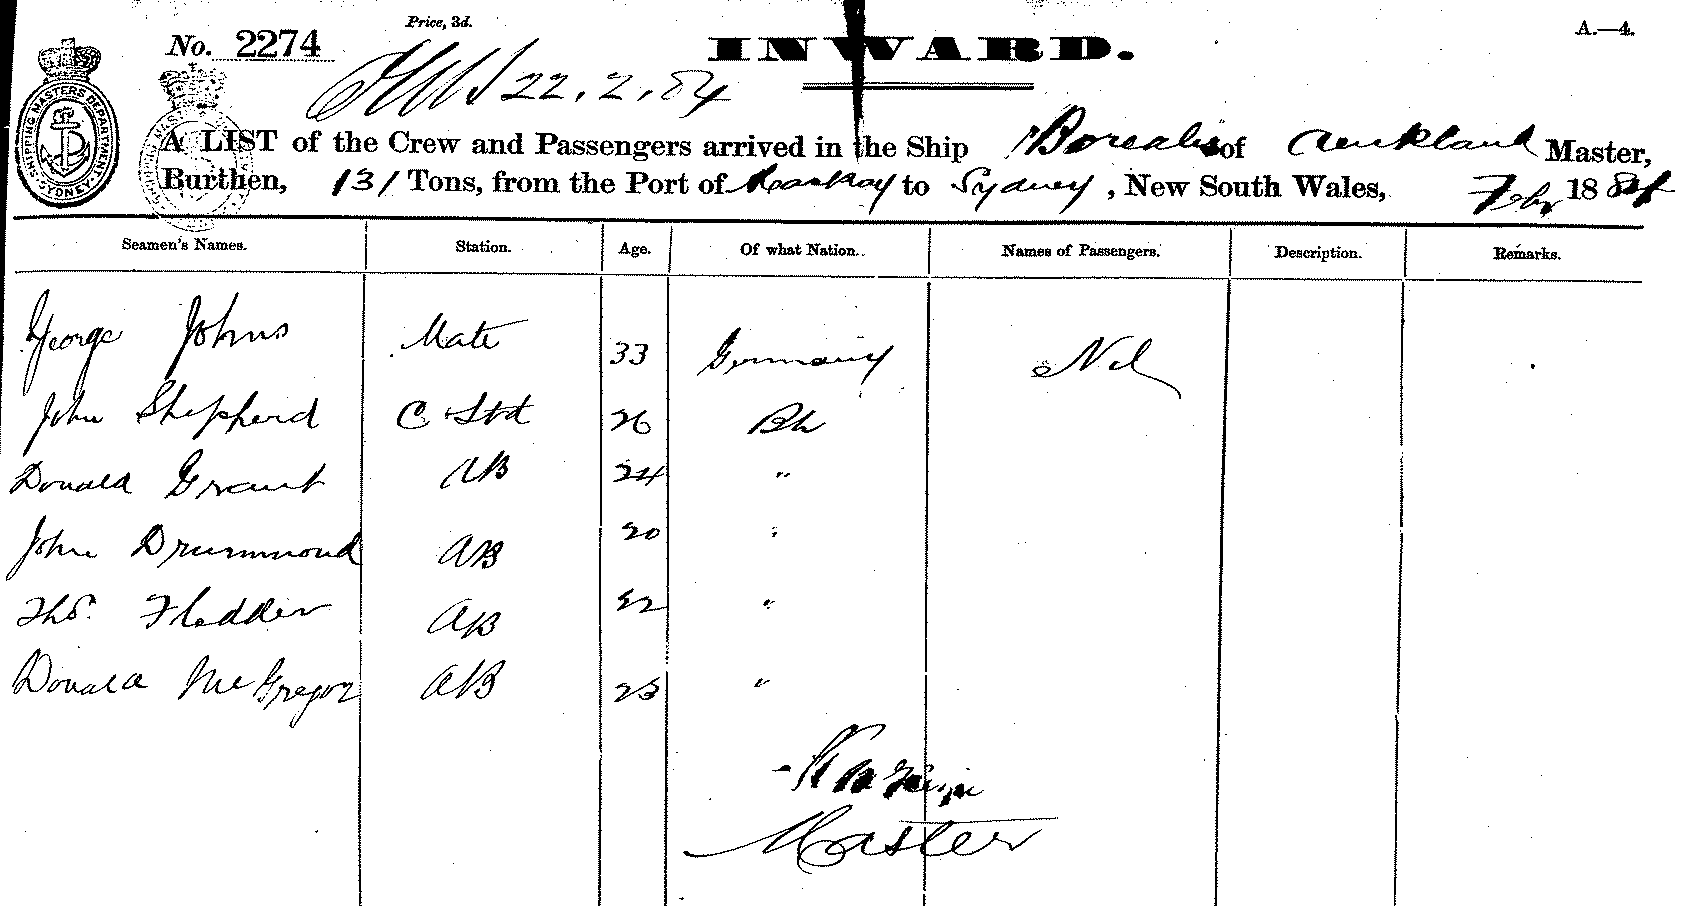 Price, 3d.
A.—4.
No. 2274
INWARD.
22.2.84
SHIPPING MASTERS DEPARTMENT
SYDNEY
A LIST of the Crew and Passengers arrived in the Ship Borealis of Auckland Master,
Burthen, 131 Tons, from the Port of to Sydney, New South Wales, Feby 1884
Seamen's Names. Station. Age. Of what Nation. Names of Passengers. Description. Remarks.
George Johns Mate 33 Germany Nil
John Shepherd C & Std 26 Bh
Donald Grant AB 24 "
John Drummond AB 20 "
Thos. Fledder AB 22 "
Donald McGregor AB 23 "
Master